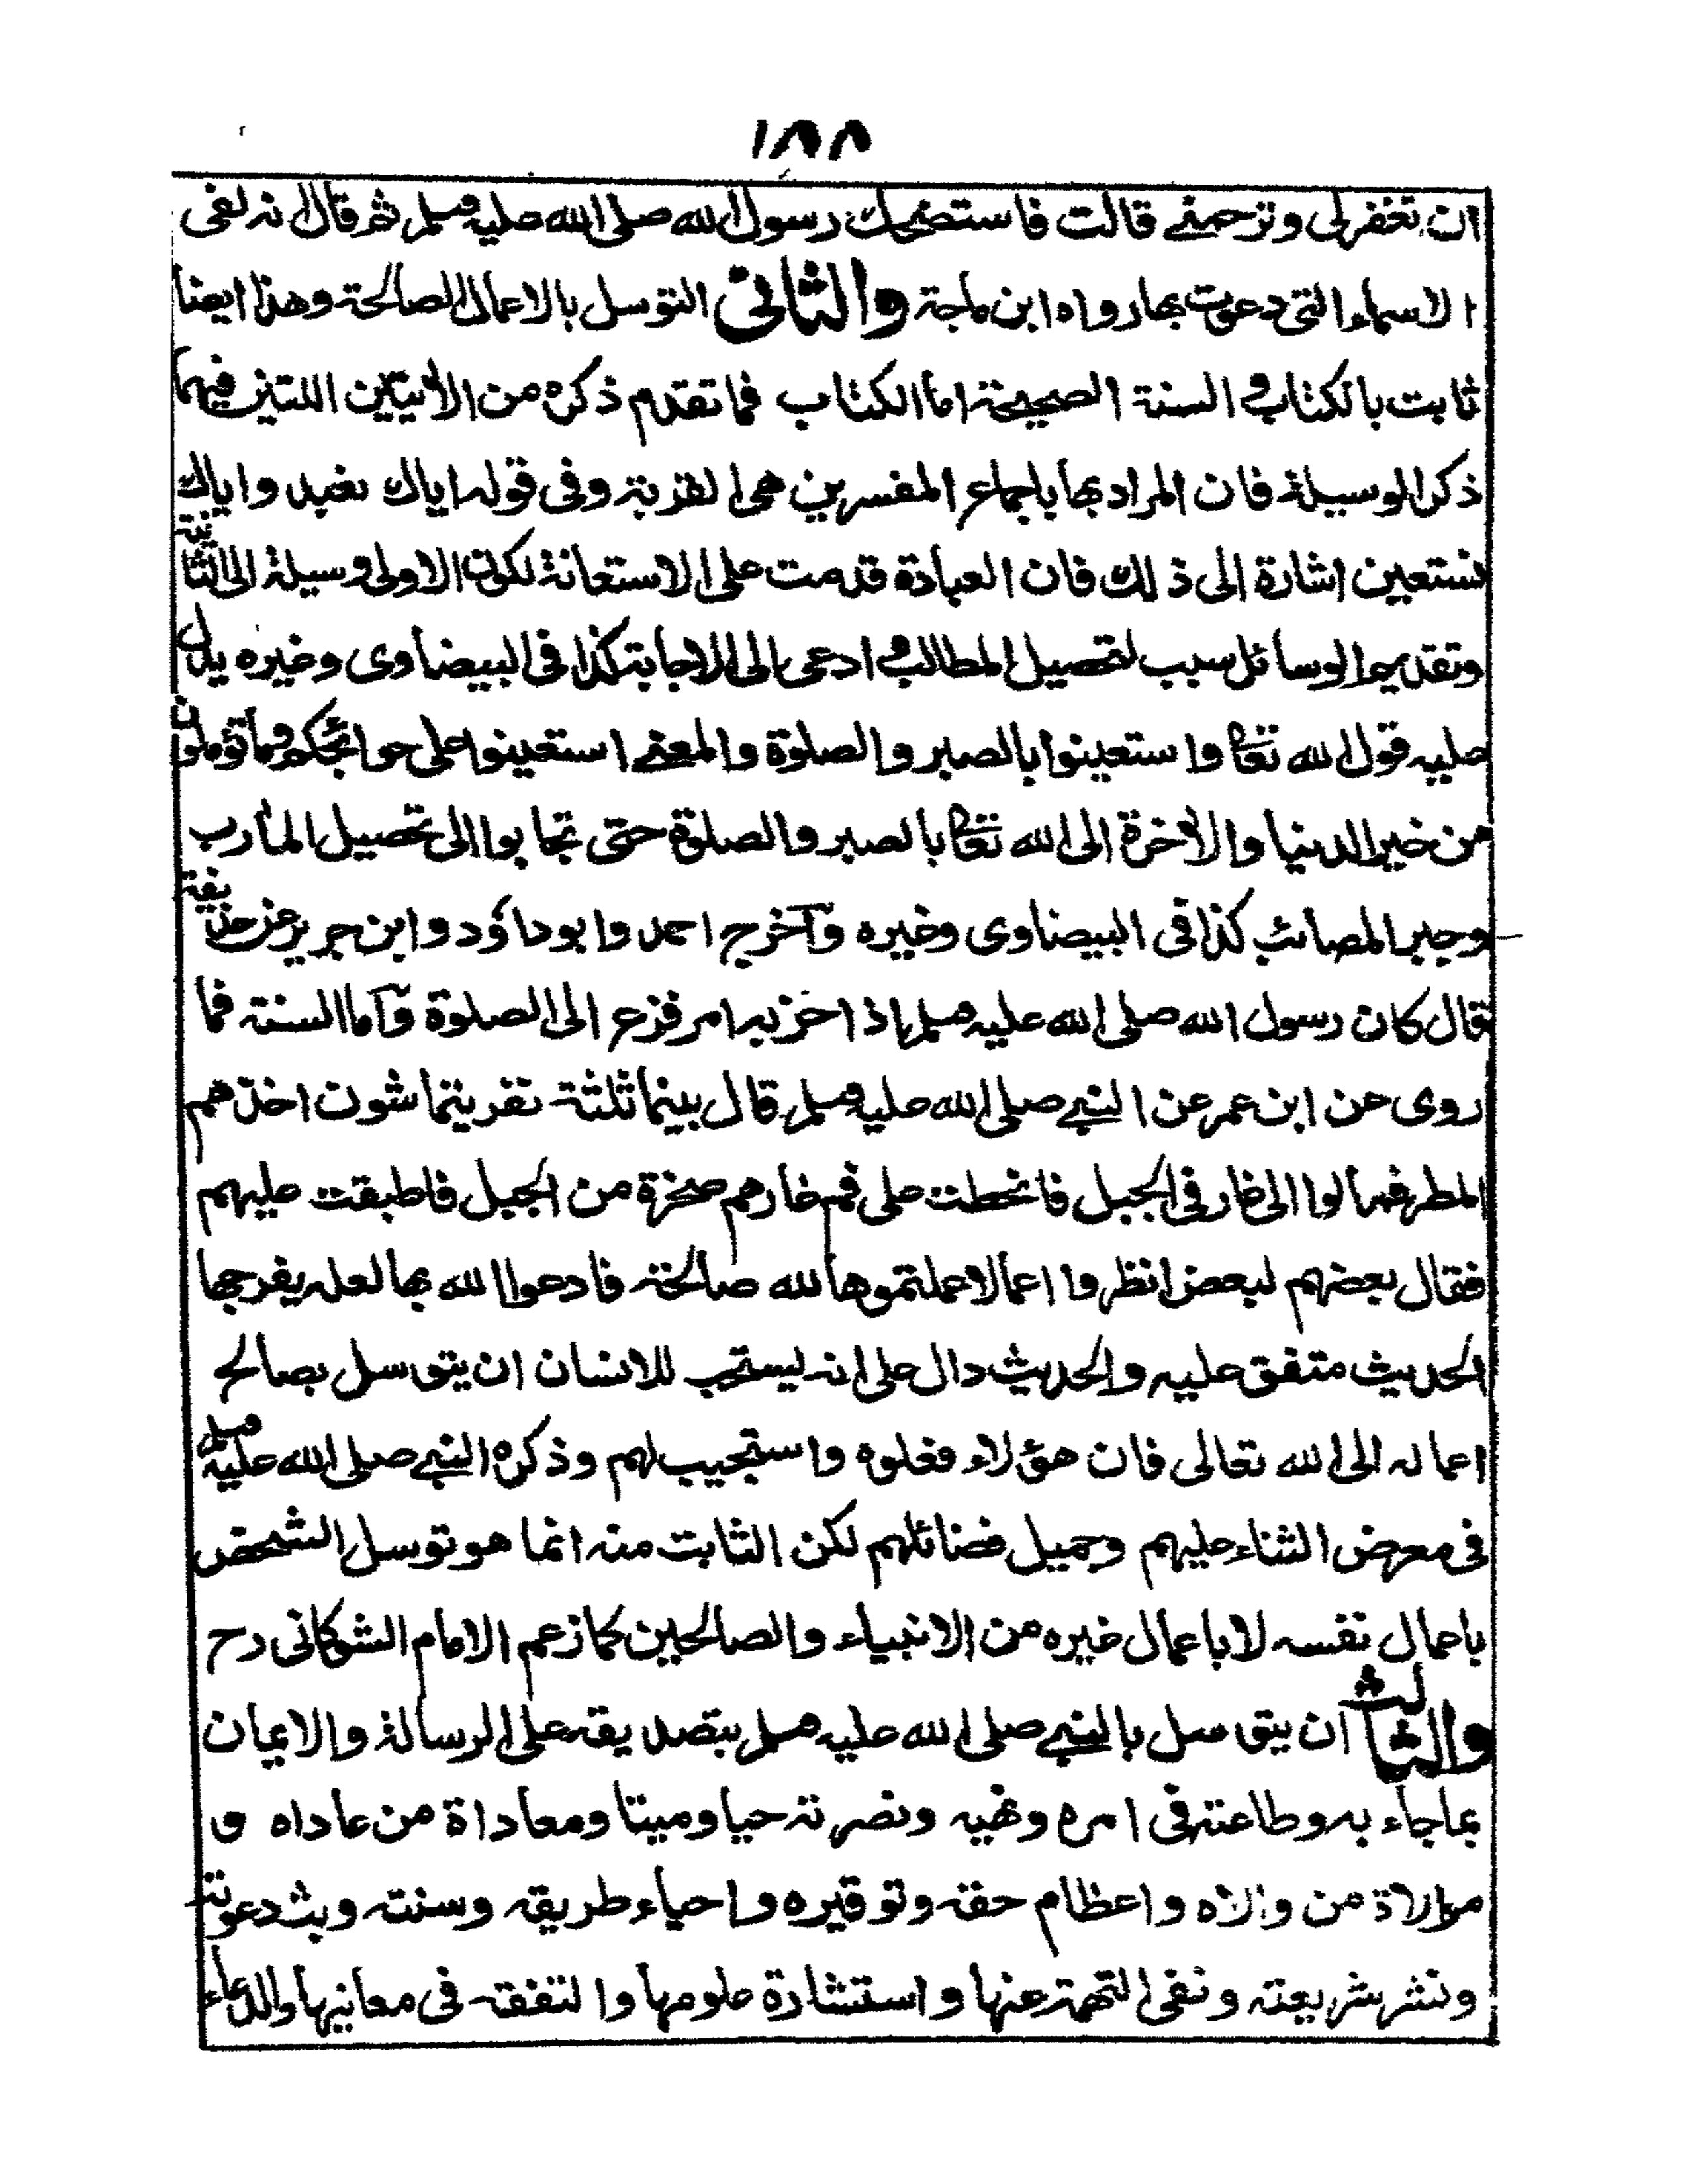 ١٨٨
ان تغفرلى وترحمنے قالت فاستضحك رسول الله صلى الله عليہ وسلم ثم قال انہ لفى
الاسماء التى دعوت بها رواه ابن ماجة والثانى التوسل بالاعمال الصالحة وهذا ايضا
ثابت بالكتاب و السنة الصحيحة اما الكتاب فما تقدم ذكره من الآيتين اللتين فيهما
ذكر الوسيلة فان المراد بها باجماع المفسرين هى القربة وفى قولہ اياك نعبد واياك
نستعين اشارة الى ذلك فان العبادة قدمت على الاستعانة لكون الاولى وسيلة الى الثانية
وتقديم الوسائل سبب لتحصيل المطالب و ادعى الى الاجابة كذا فى البيضاوى وغيره يدل
عليہ قول الله تعالى واستعينوا بالصبر والصلوة والمعنے استعينوا على حوائجكم وما تؤملون
من خير الدنيا والآخرة الى الله تعالى بالصبر والصلوة حتى تجابوا الى تحصيل المأرب
وجبر المصائب كذا فى البيضاوى وغيره وآخرج احمد وابو داؤد وابن جرير عن حذيفة
قال كان رسول الله صلى الله عليہ وسلم اذا حزبہ امر فزع الى الصلوة وآما السنة فما
روى عن ابن عمر عن النبے صلى الله عليہ وسلم قال بينما ثلثة نفر يتماشون اخذهم
المطر فمالوا الى غار فى الجبل فانحطت على فم غارهم صخرة من الجبل فاطبقت عليهم
فقال بعضهم لبعض انظروا اعمالا عملتموها لله صالحة فادعوا الله بها لعلہ يفرجها
الحديث متفق عليہ والحديث دال على انہ ليستحب للانسان ان يتوسل بصالح
اعمالہ الى الله تعالى فان هؤلاء فعلوه واستجيب لهم وذكره النبے صلى الله عليہ وسلم
فى معرض الثناء عليهم وجميل فضائلهم لكن الثابت منہ انما هو توسل الشخص
باعمال نفسہ لا باعمال غيره من الانبياء والصالحين كما زعم الامام الشوكانى رح
والثالث ان يتوسل بالنبے صلى الله عليہ وسلم بتصديقہ على الرسالة والايمان
بما جاء بہ وطاعتہ فى امره ونهيہ ونصرتہ حيا وميتا ومعاداة من عاداه و
موالاة من والاه واعظام حقہ وتوقيره واحياء طريقہ وسنتہ وبث دعوتہ
ونشر شريعتہ ونفى التهمة عنها واستشارة علومها والتفقہ فى معانيها والدعاء